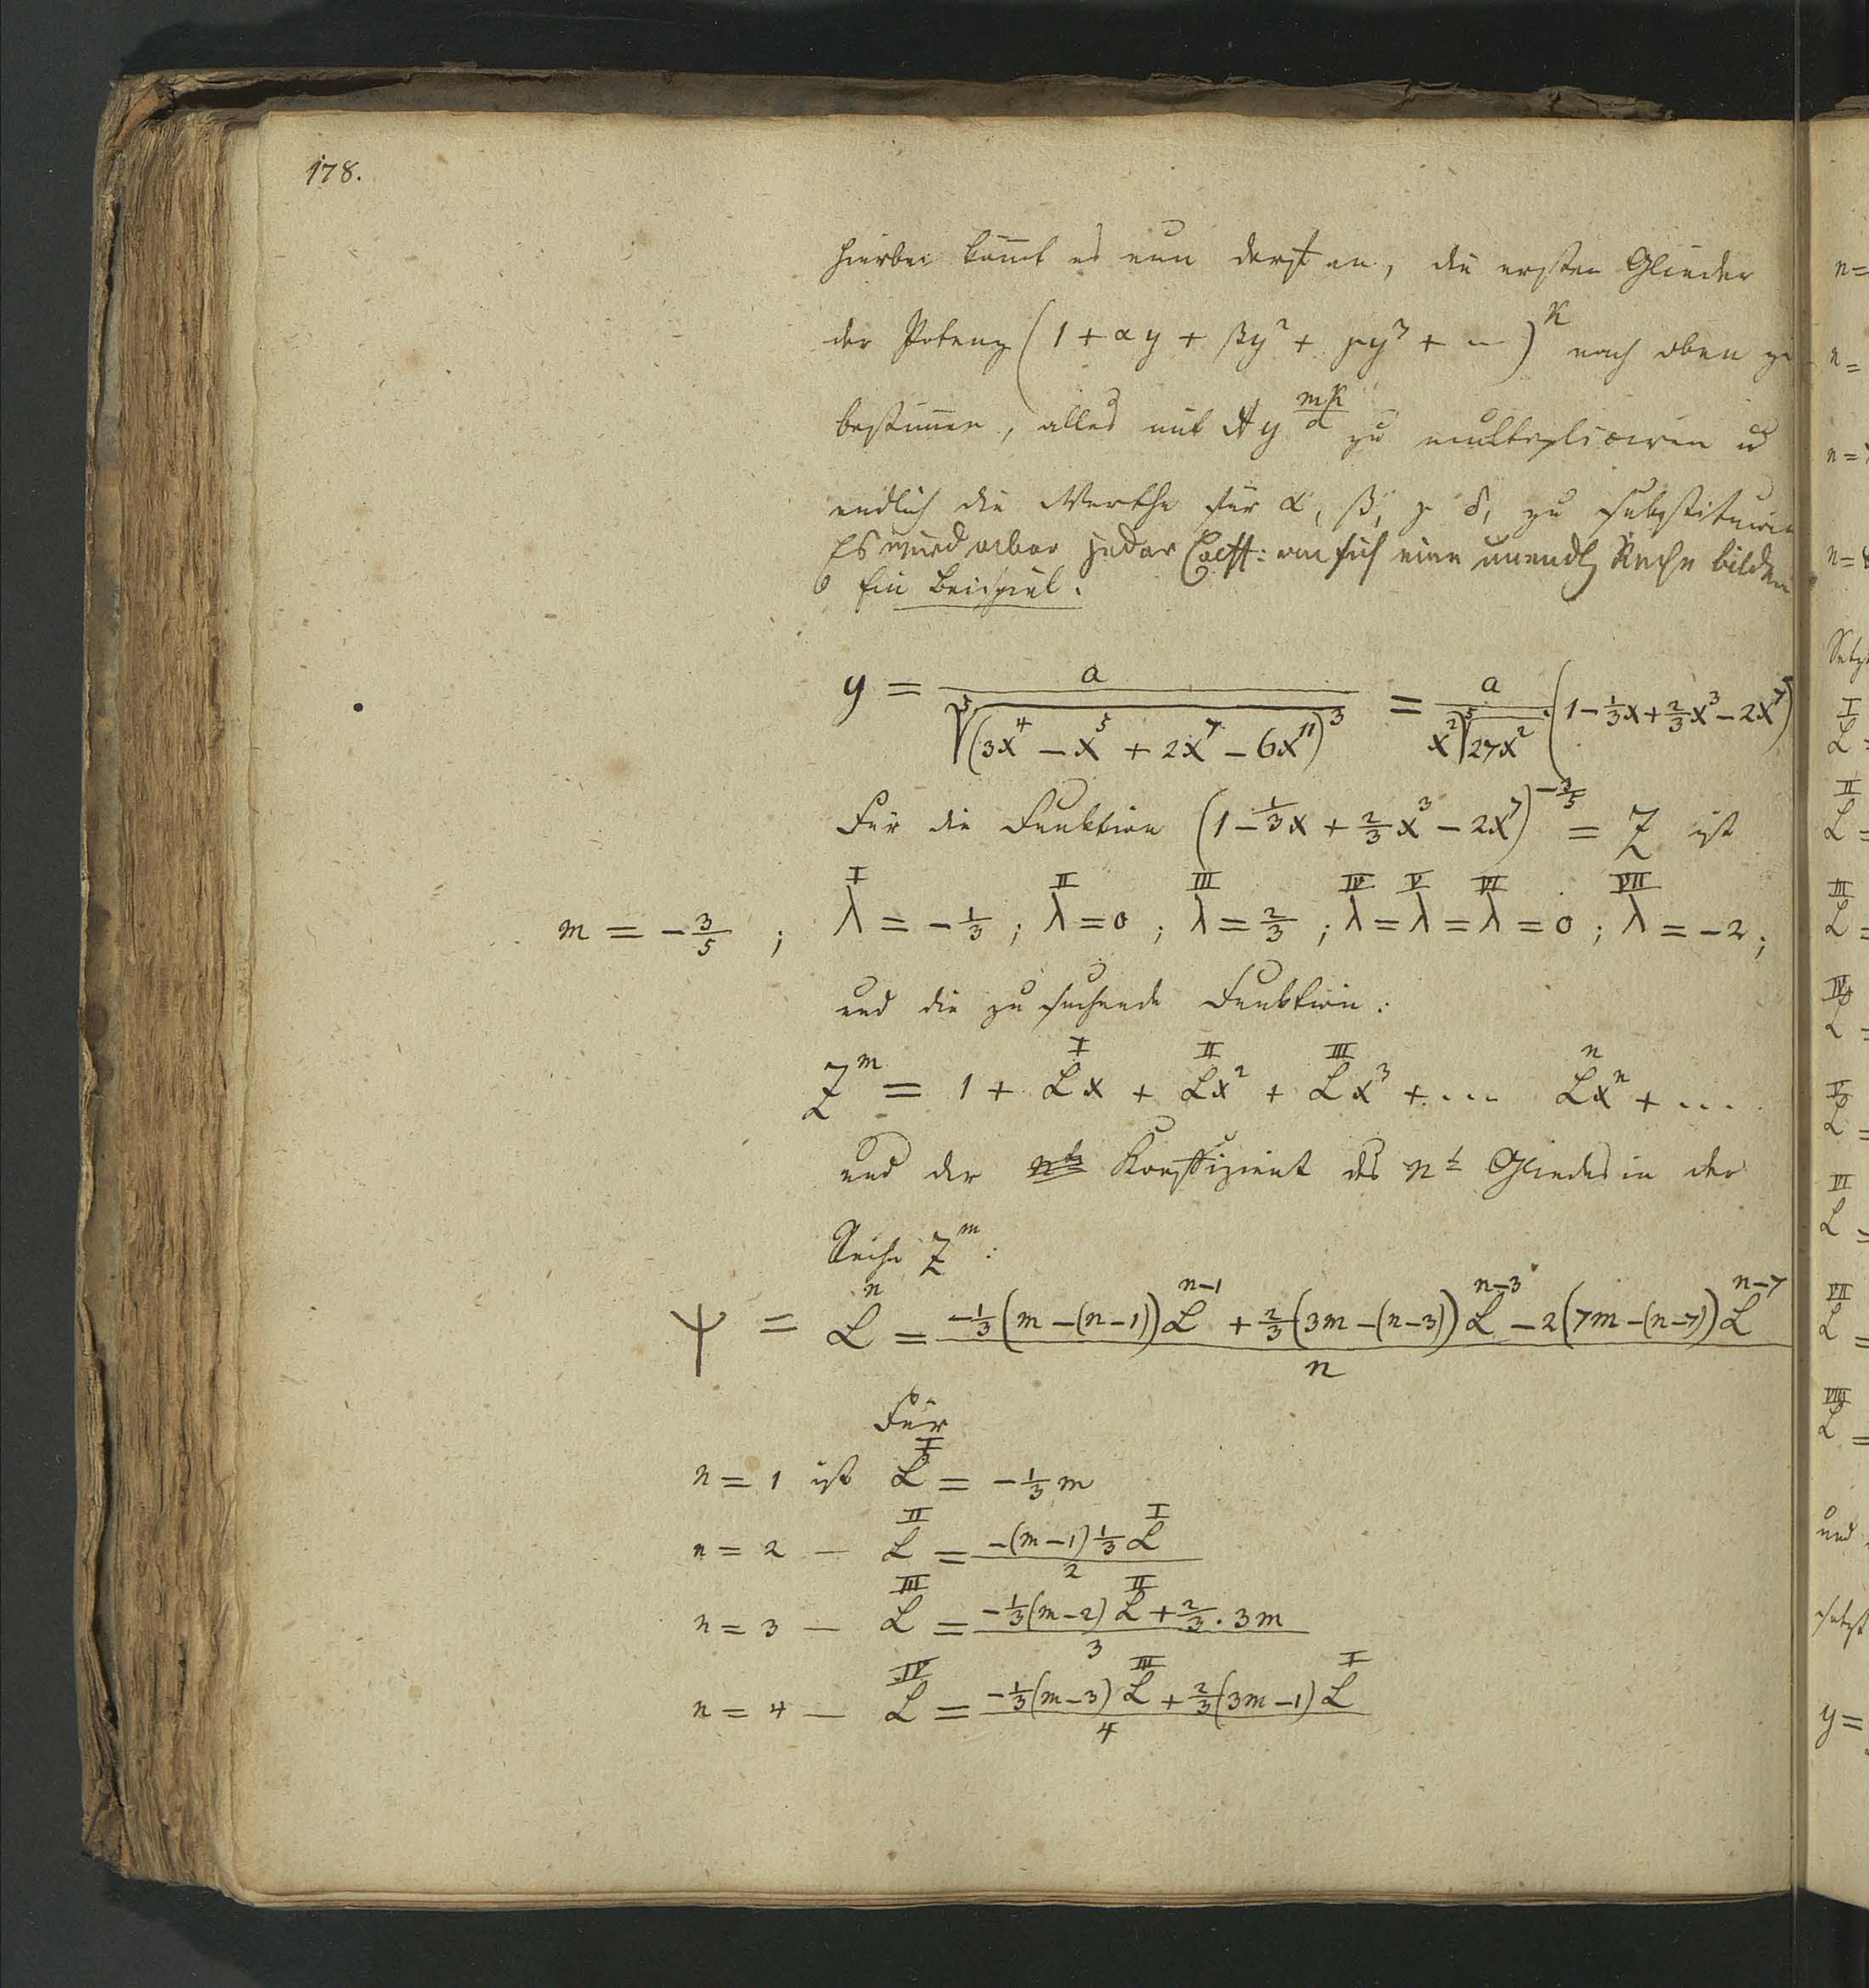 178.
hierbei kom̄t es nun darauf an, die ersten Glieder
der Potenz (1 + αy + βy² + γy³ + ⋯)^κ nach oben zu
bestim̄en, alles mit Ay^(mκ/α) zu multipliciren u
endlich die Werthe für α, β, γ δ, zu substituiren
Es wird aber jeder Coeff: an sich eine unendl Reihe bilden
Ein Beispiel:
y = a / ⁵√(3x⁴ − x⁵ + 2x⁷ − 6x¹¹)³ = a / x² ⁵√27x² · (1 − 1/3 x + 2/3 x³ − 2x⁷)
Für die Funktion (1 − 1/3 x + 2/3 x³ − 2x⁷)^(−3/5) = Z ist
m = −3/5 ; λ^I = −1/3 ; λ^II = 0 ; λ^III = 2/3 ; λ^IV = λ^V = λ^VI = 0 ; λ^VII = −2 ;
und die zu suchende Funktion:
Z^m = 1 + L^I x + L^II x² + L^III x³ + ... L^n x^n + ...
und der nte Koeffizient des n^t Gliedes in der
Reihe Z^m:
ψ = L^n = (−1/3 (m − (n−1)) L^(n−1) + 2/3 (3m − (n−3)) L^(n−3) − 2 (7m − (n−7)) L^(n−7)) / n
Für
n = 1 ist L^I = −1/3 m
n = 2 — L^II = (−(m−1) 1/3 L^I) / 2
n = 3 — L^III = (−1/3 (m−2) L^II + 2/3 · 3m) / 3
n = 4 — L^IV = (−1/3 (m−3) L^III + 2/3 (3m−1) L^I) / 4
n=
n=
n=7
n=8
Setz
L^I =
L^II =
L^III =
L^IV =
L^V =
L^VI =
L^VII =
L^VIII =
und
y =